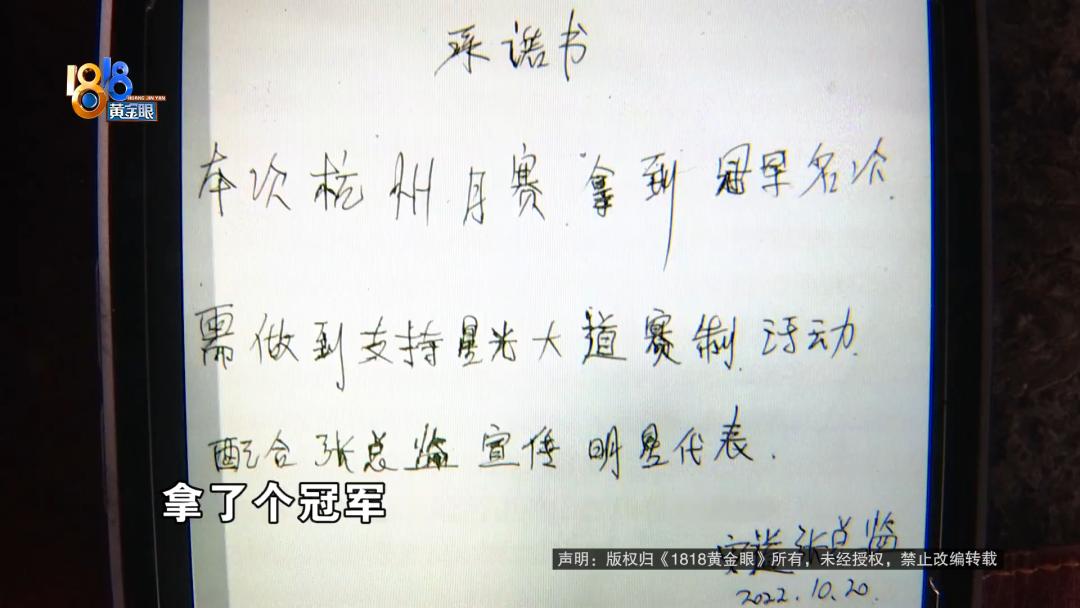 1818
HUANG JIN YAN
黄金眼
承诺书
本次杭州月赛拿到冠军名次
需做到支持星光大道赛制活动.
配合张总监宣传明星代表.
拿了个冠军
张总监
声明：版权归《1818黄金眼》所有，未经授权，禁止改编转载
2022.10.20.